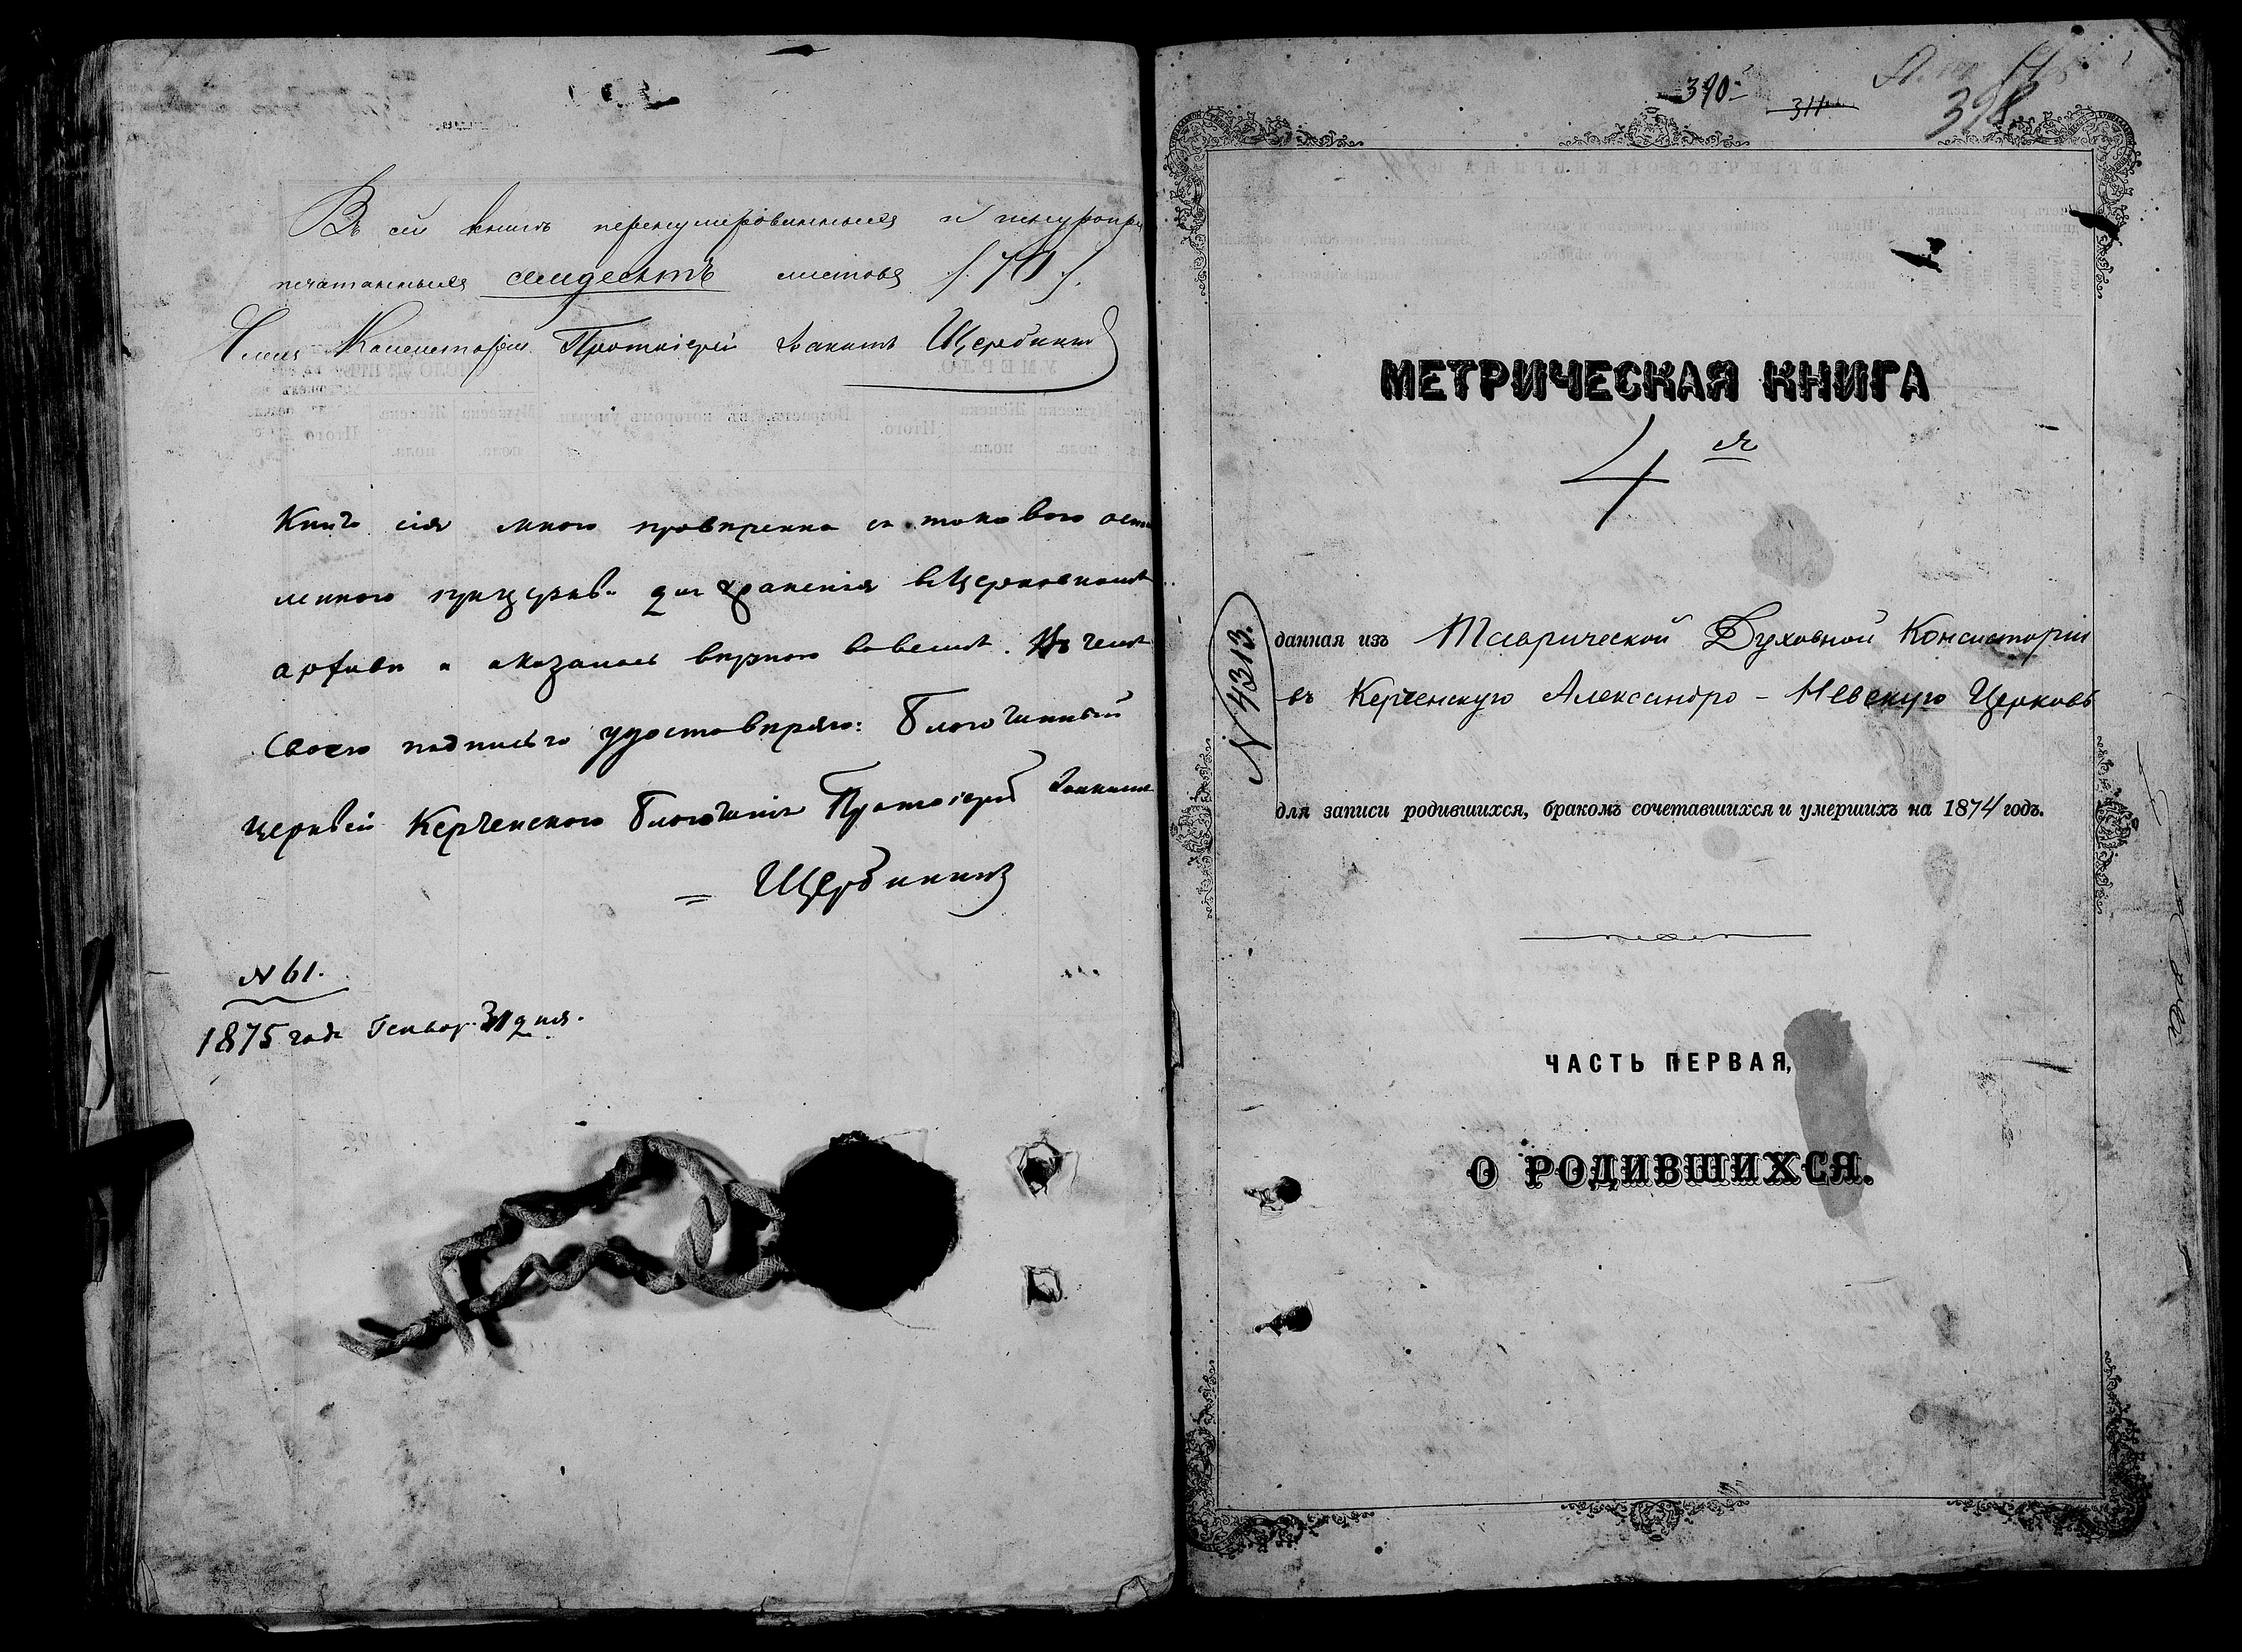 Въ сей книгѣ перенумерованныхъ и шнуропри
печатанныхъ семдесятъ листовъ /.70./.
Членъ Консисторіи Протоіерей Іоаннъ Щербининъ
Книга сія мною провѣренна съ таковою остав
ленною при церкви для храненія въ Церковномъ
архивѣ и оказалась вѣрною во всемъ. Въ чемъ
своею подписью удостовѣряю: Благочинный
церквей Керченскаго Благочинія Протоіерей Іоаннъ
Щербининъ
N 61.
1875 года Генвар. 31 дня.
390
311
398
МЕТРИЧЕСКАЯ КНИГА
4 я
N 4313.
данная изъ Таврической Духовной Консисторіи
въ Керченскую Александро-Невскую Церковь
для записи родившихся, бракомъ сочетавшихся и умершихъ на 1874 годъ.
ЧАСТЬ ПЕРВАЯ,
О РОДИВШИХСЯ.